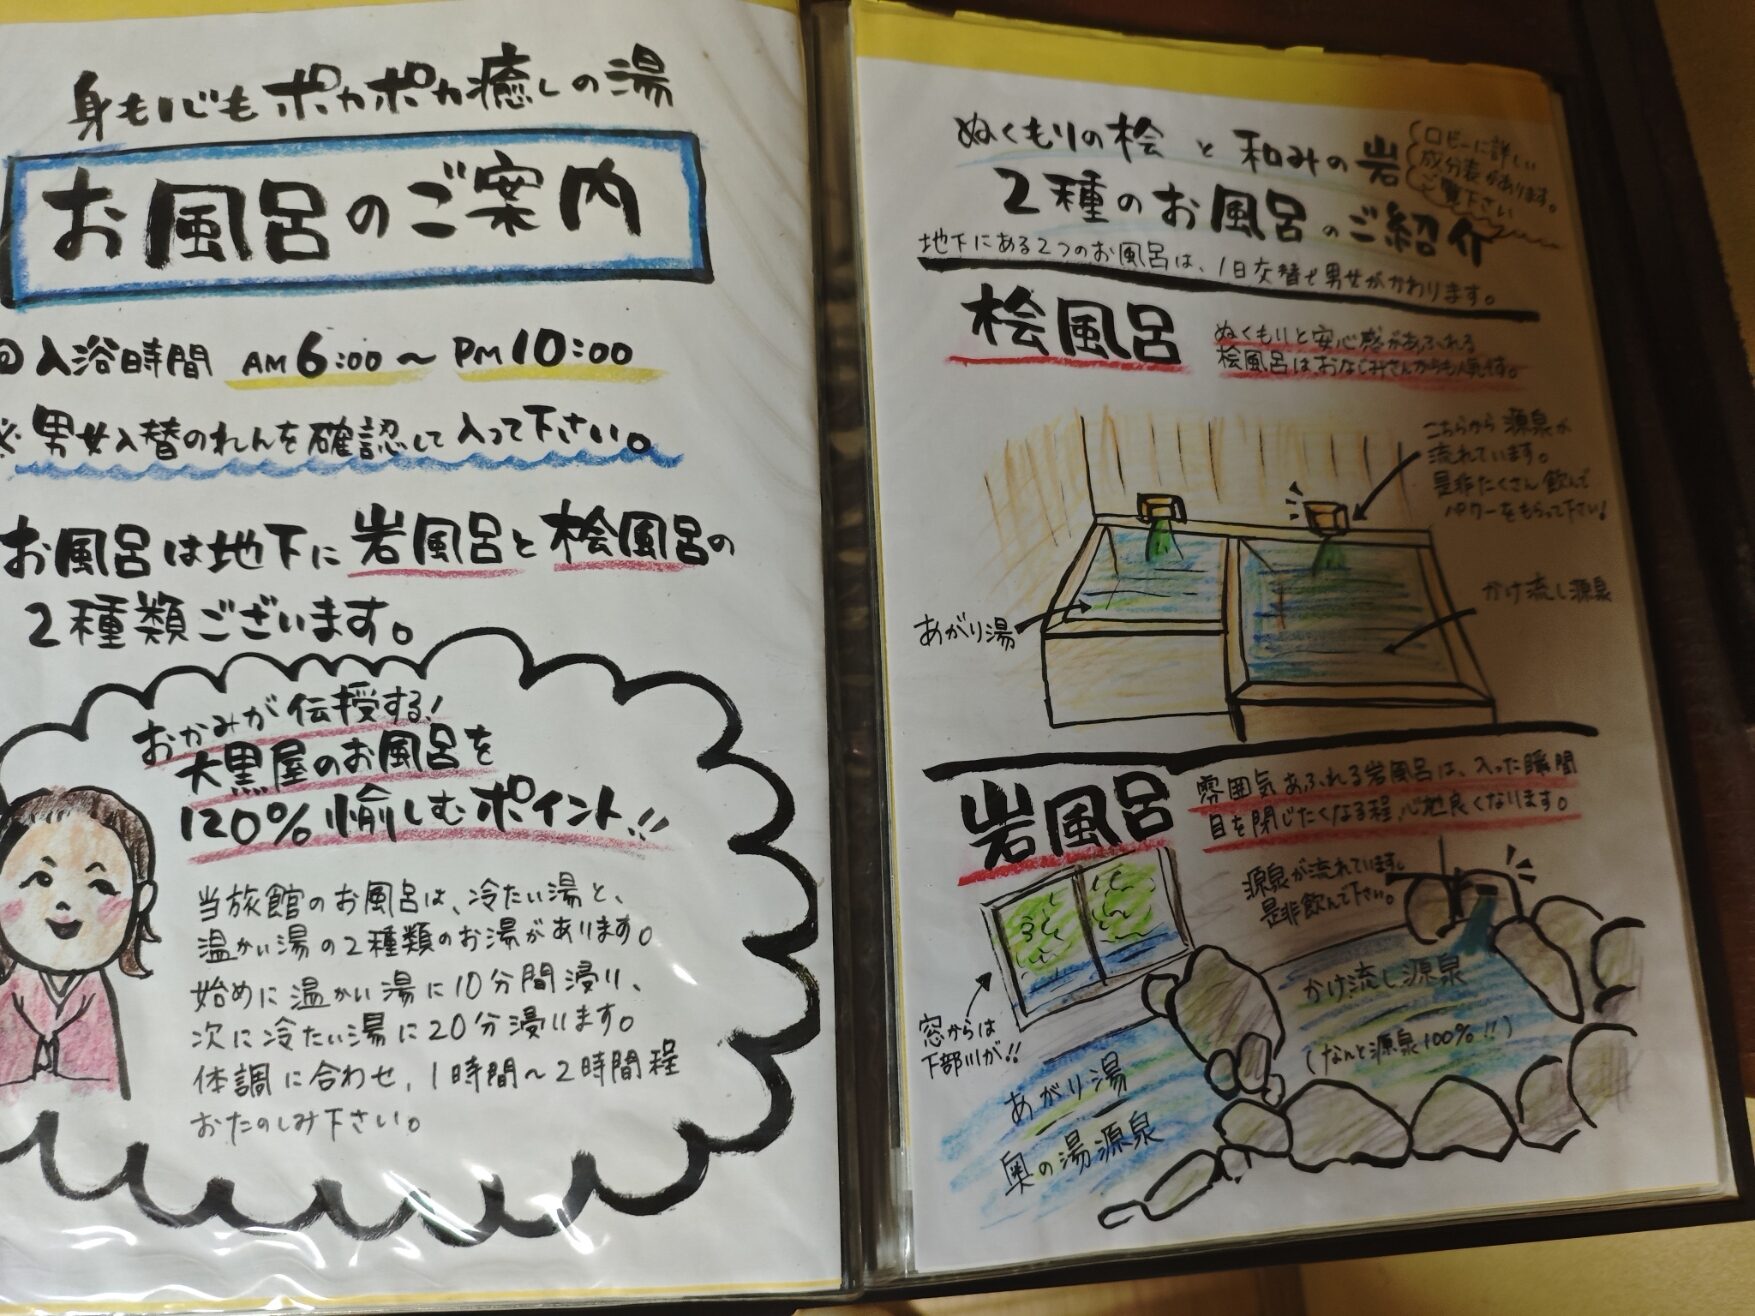 身も心もポカポカ癒しの湯
お風呂のご案内
入浴時間 AM6:00～PM10:00
※男女入替のれんを確認して入って下さい。
お風呂は地下に岩風呂と桧風呂の
2種類ございます。
おかみが伝授する!
大黒屋のお風呂を
120%愉しむポイント!!
当旅館のお風呂は、冷たい湯と、
温かい湯の2種類のお湯があります。
始めに温かい湯に10分間浸り、
次に冷たい湯に20分浸ります。
体調に合わせ、1時間～2時間程
おたのしみ下さい。
ぬくもりの桧と和みの岩
2種のお風呂のご紹介
ロビーに詳しい
成分表があります。
ご覧下さい
地下にある2つのお風呂は、1日交替で男女がかわります。
桧風呂
ぬくもりと安心感があふれる
桧風呂はおなじみさんからも人気です。
こちらから源泉が
流れています。
是非たくさん飲んで
パワーをもらって下さい!
あがり湯
かけ流し源泉
岩風呂
雰囲気あふれる岩風呂は、入った瞬間
目を閉じたくなる程、心地良くなります。
源泉が流れています。
是非飲んで下さい。
窓からは
下部川が!!
かけ流し源泉
(なんと源泉100%!!)
あがり湯
奥の湯源泉